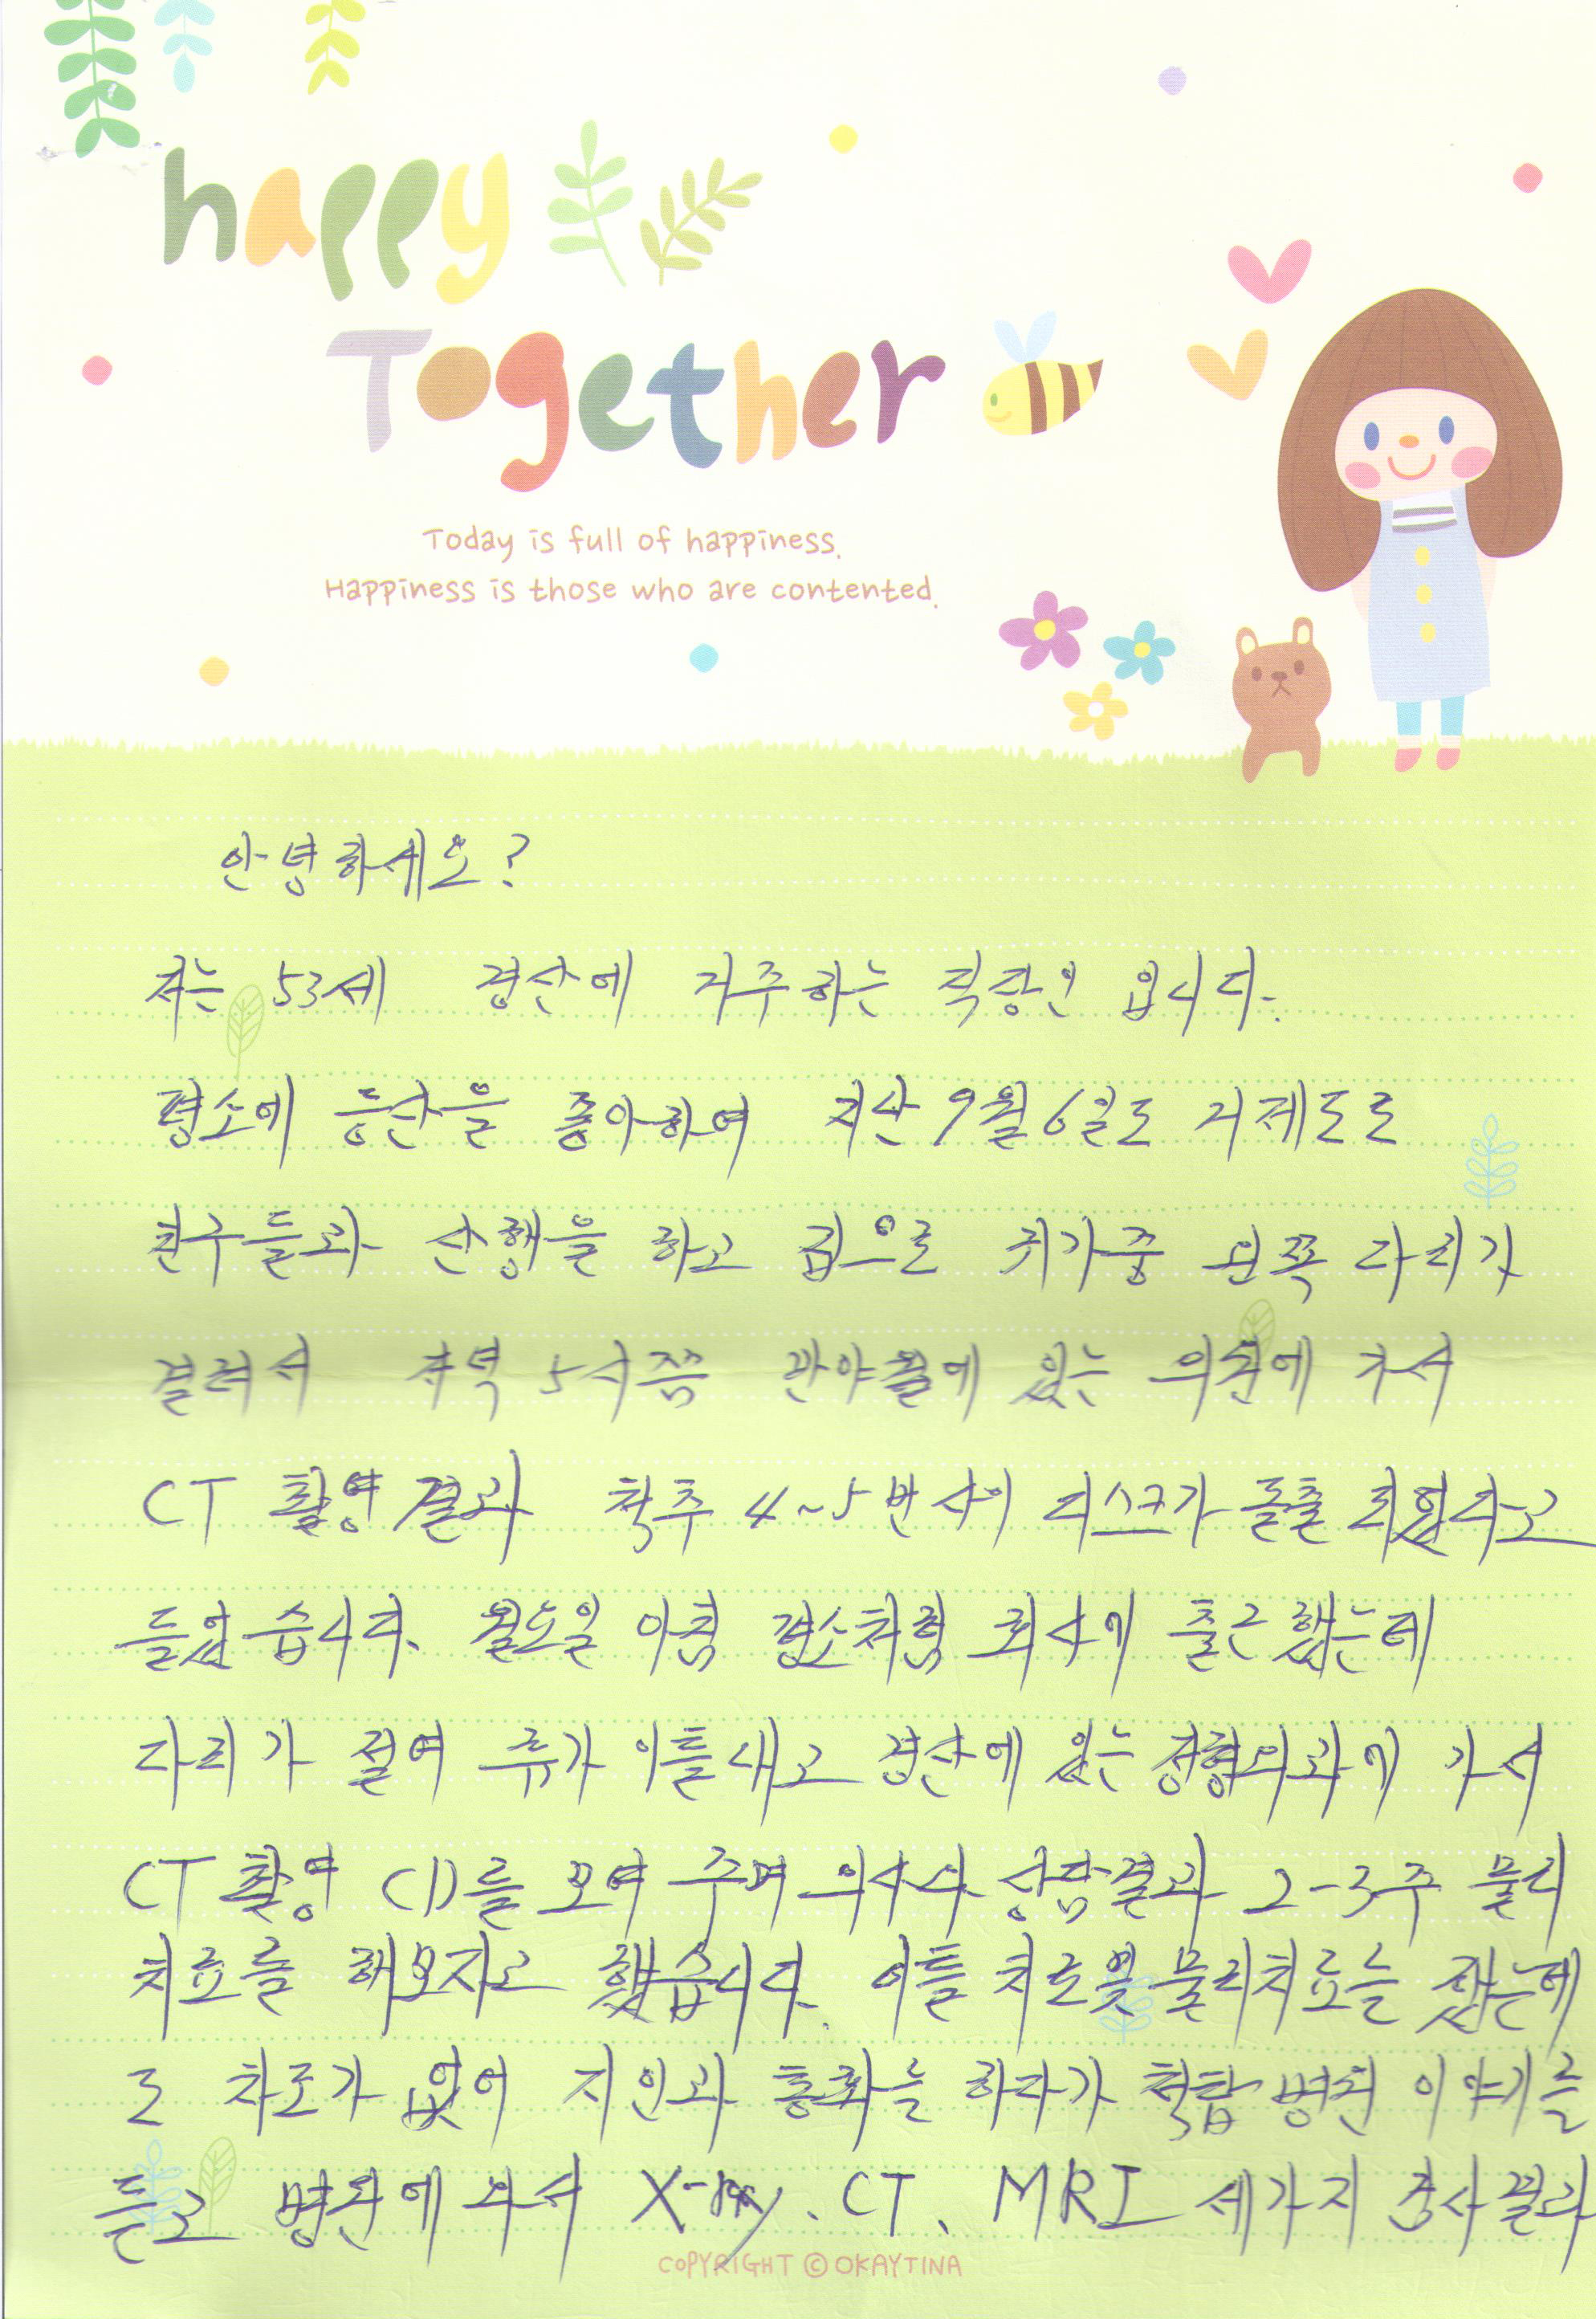 happy
Together
Today is full of happiness.
Happiness is those who are contented.
안녕하세요?
저는 53세 경산에 거주하는 직장인 입니다.
평소에 등산을 좋아하여 지난 9월 6일도 거제도로
친구들과 산행을 하고 집으로 귀가중 왼쪽 다리가
결려서 저녁 5시쯤 관야월에 있는 의원에 가서
CT 촬영결과 척추 4~5번 사이 디스크가 돌출 되었다고
들었습니다. 월요일 아침 평소처럼 회사에 출근했는데
다리가 절여 휴가 이틀내고 경산에 있는 정형외과에 가서
CT 촬영 CD를 보여 주며 의사와 상담결과 2-3주 물리
치료를 해보자고 했습니다. 이틀 치료및 물리치료를 했는데
도 차도가 없어 지인과 통화를 하다가 척탑병원 이야기를
듣고 병원에 와서 X-ray、CT、MRI 세가지 검사결과
COPYRIGHT © OKAYTINA